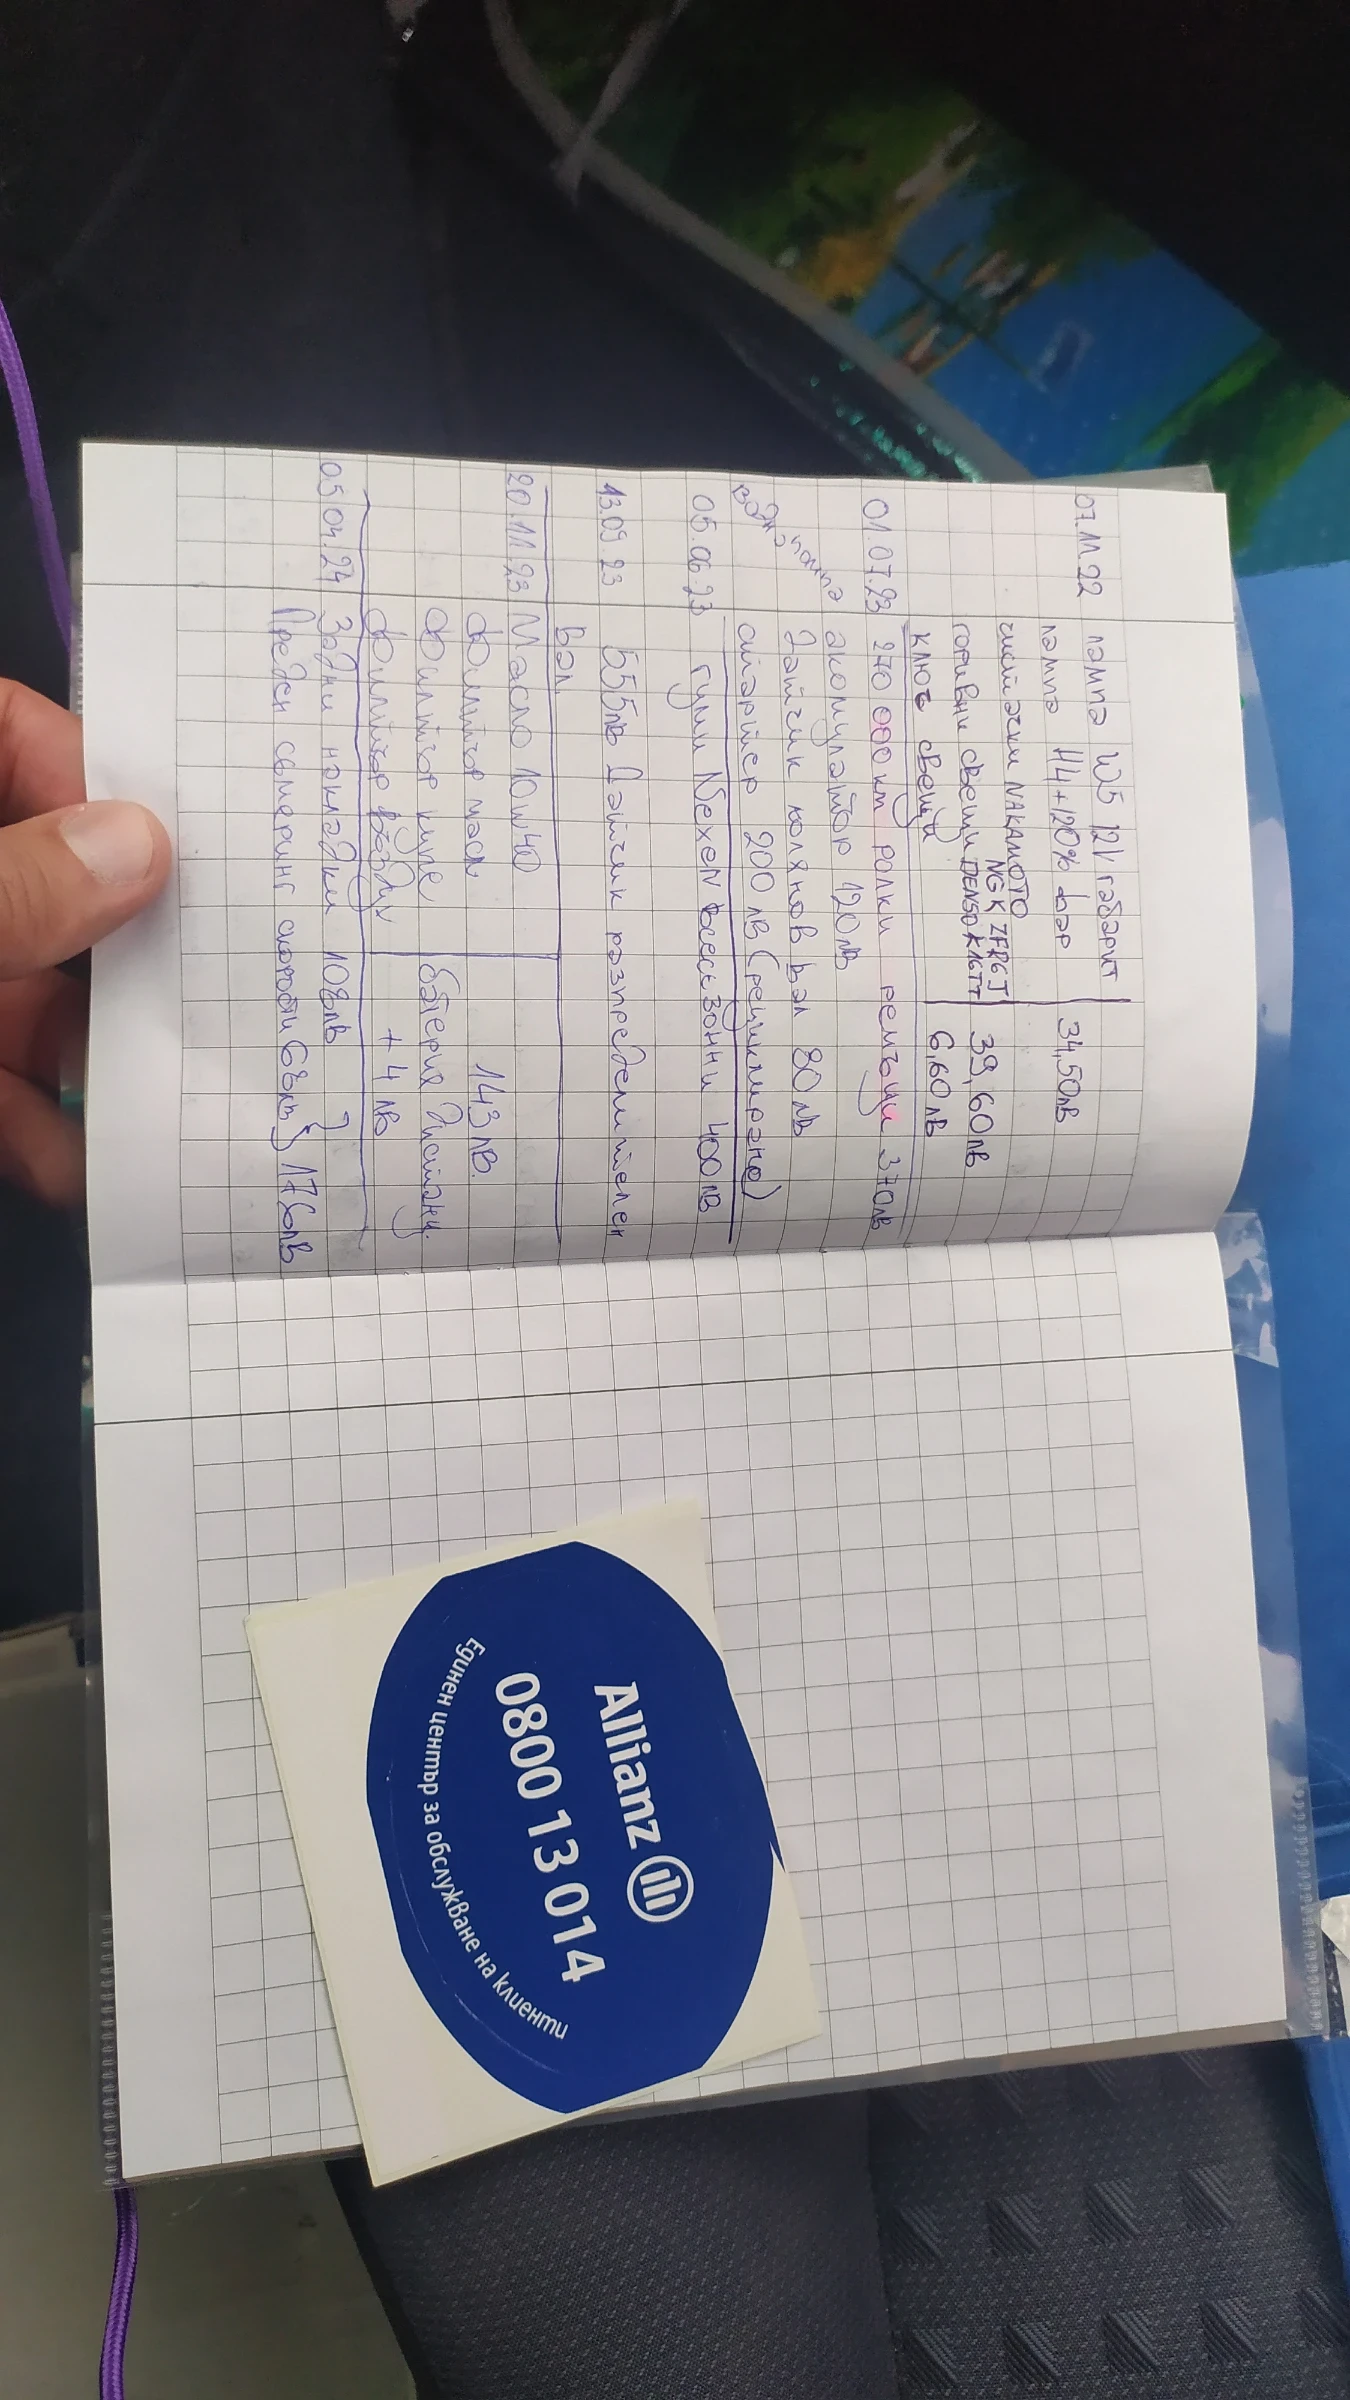 07.11.22 лампа W5 12V габарит
лампа H4+120% фар 34,50лв
чистачки NAKAMOTO
NGK ZFR6J
горивни свещи DENSO K16TT 39,60лв
ключ свещи 6,60лв
01.07.23 270 000 км ролки ремъци 370лв
водна помпа
акомулатор 120лв
Датчик колянов вал 80лв
стартер 200лв (рециклирано)
05.06.23 гуми NexeN всесезонни 400лв
13.09.23 555лв Датчик разпределителен
вал
20.11.23 Масло 10w40
Филтър масл 143лв.
Филтър купе батерия дистанц.
Филтър въздух +4лв
05.04.24 Задни накладки 108лв
Преден семеринг скорости 68лв } 176лв
Allianz
0800 13 014
Единен център за обслужване на клиенти